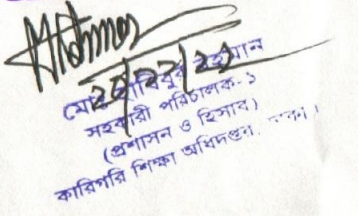 মোঃ হাবিবুর রহমান
সহকারী পরিচালক-১
(প্রশাসন ও হিসাব)
কারিগরি শিক্ষা অধিদপ্তর, ঢাকা।